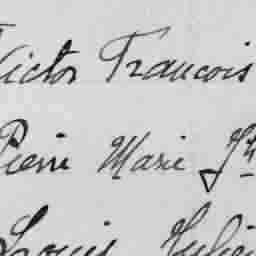 Victor Francois
Pierre Marie Jh
Louis Julien